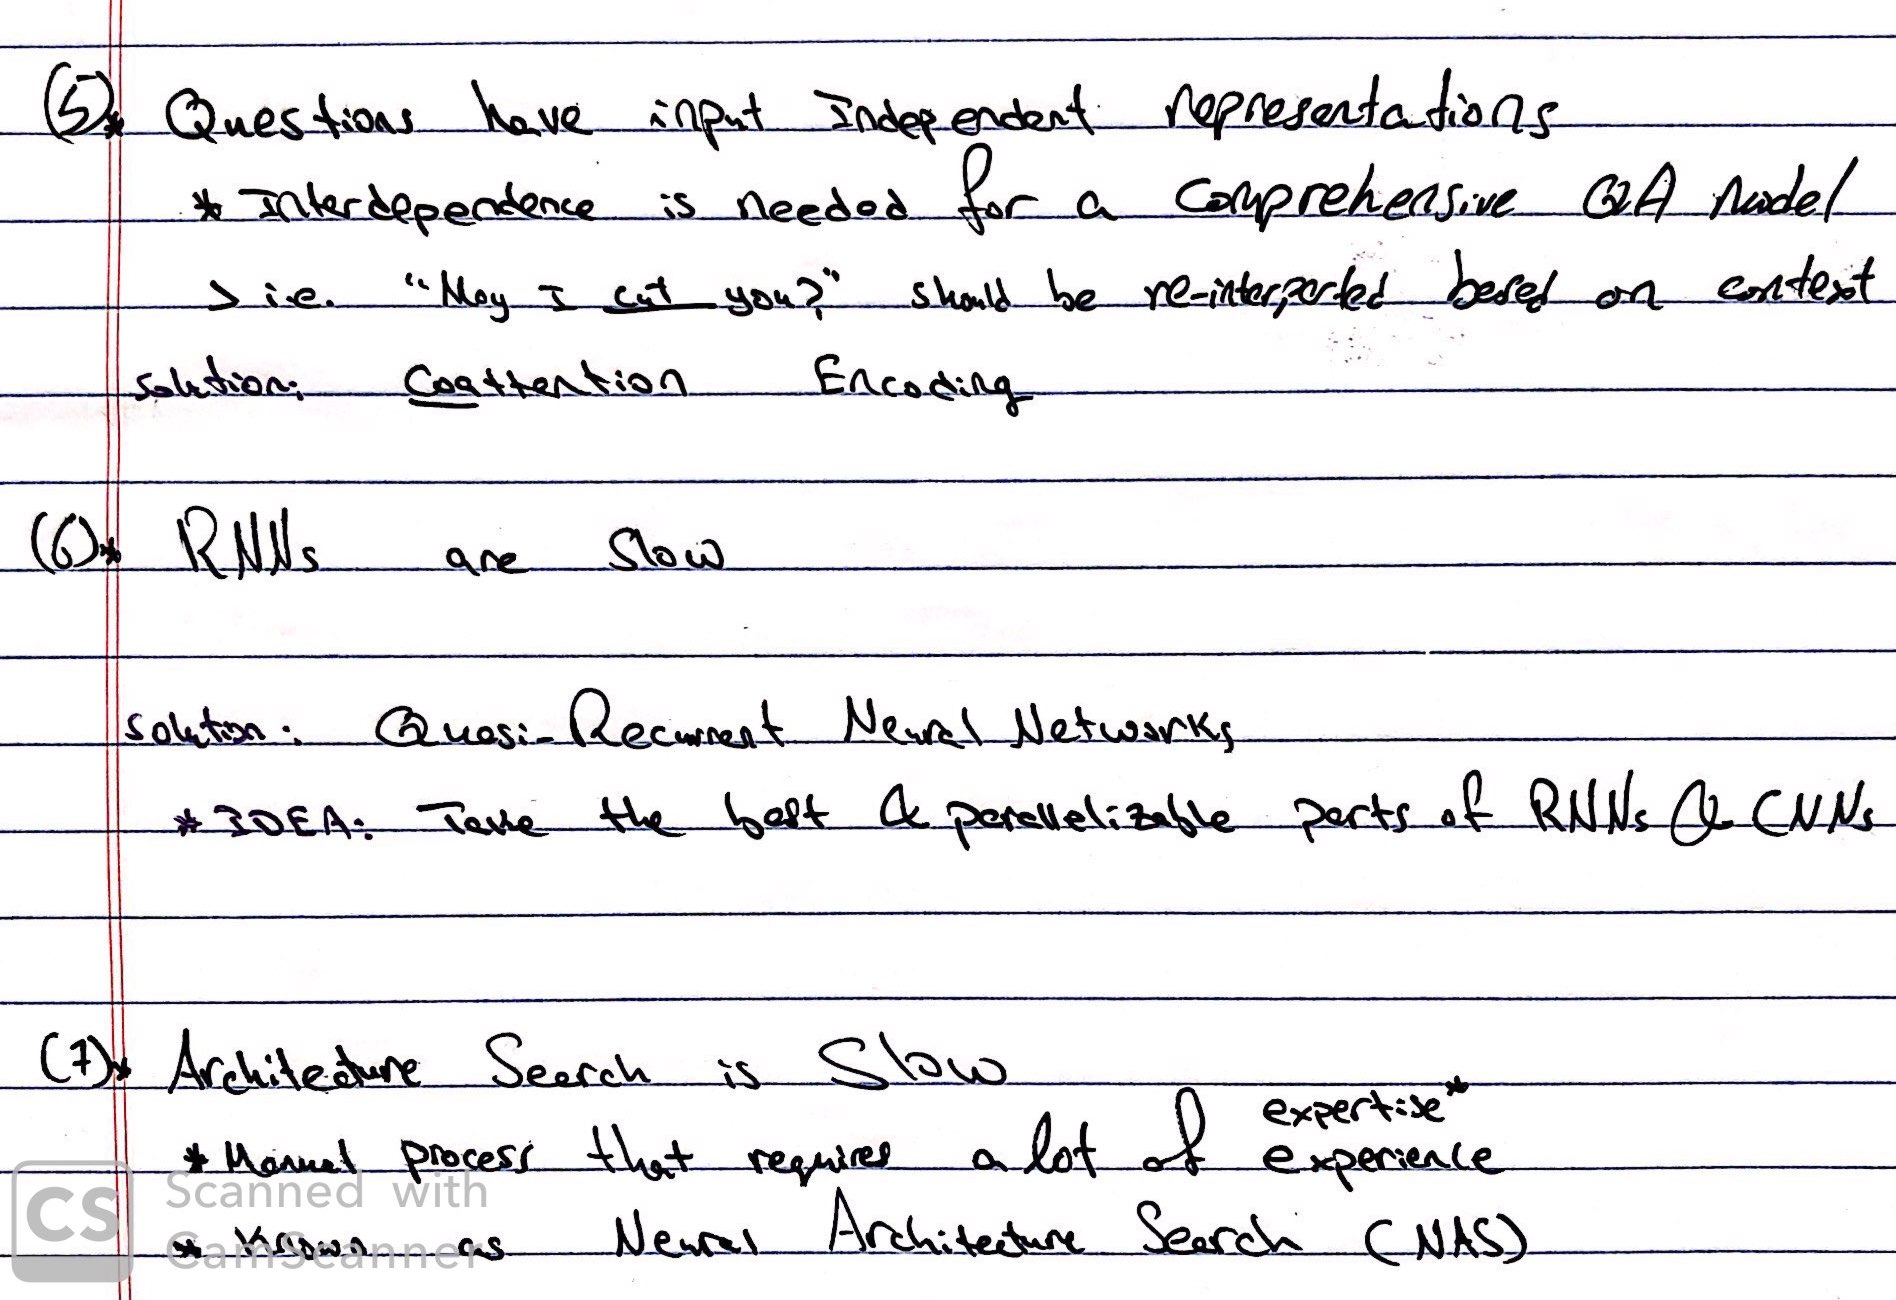 (5)* Questions have input Independent representations
* Interdependence is needed for a comprehensive QA Model
> i.e. "May I cut you?" should be re-interperted based on context
solution: Coattention Encoding
(6)* RNNs are Slow
solution: Quasi-Recurrent Neural Networks
* IDEA: Take the best & parallelizable parts of RNNs & CNNs
(7)* Architecture Search is Slow
expertise*
* Manual process that requires a lot of experience
* Known as Neural Architecture Search (NAS)
CS Scanned with
CamScanner